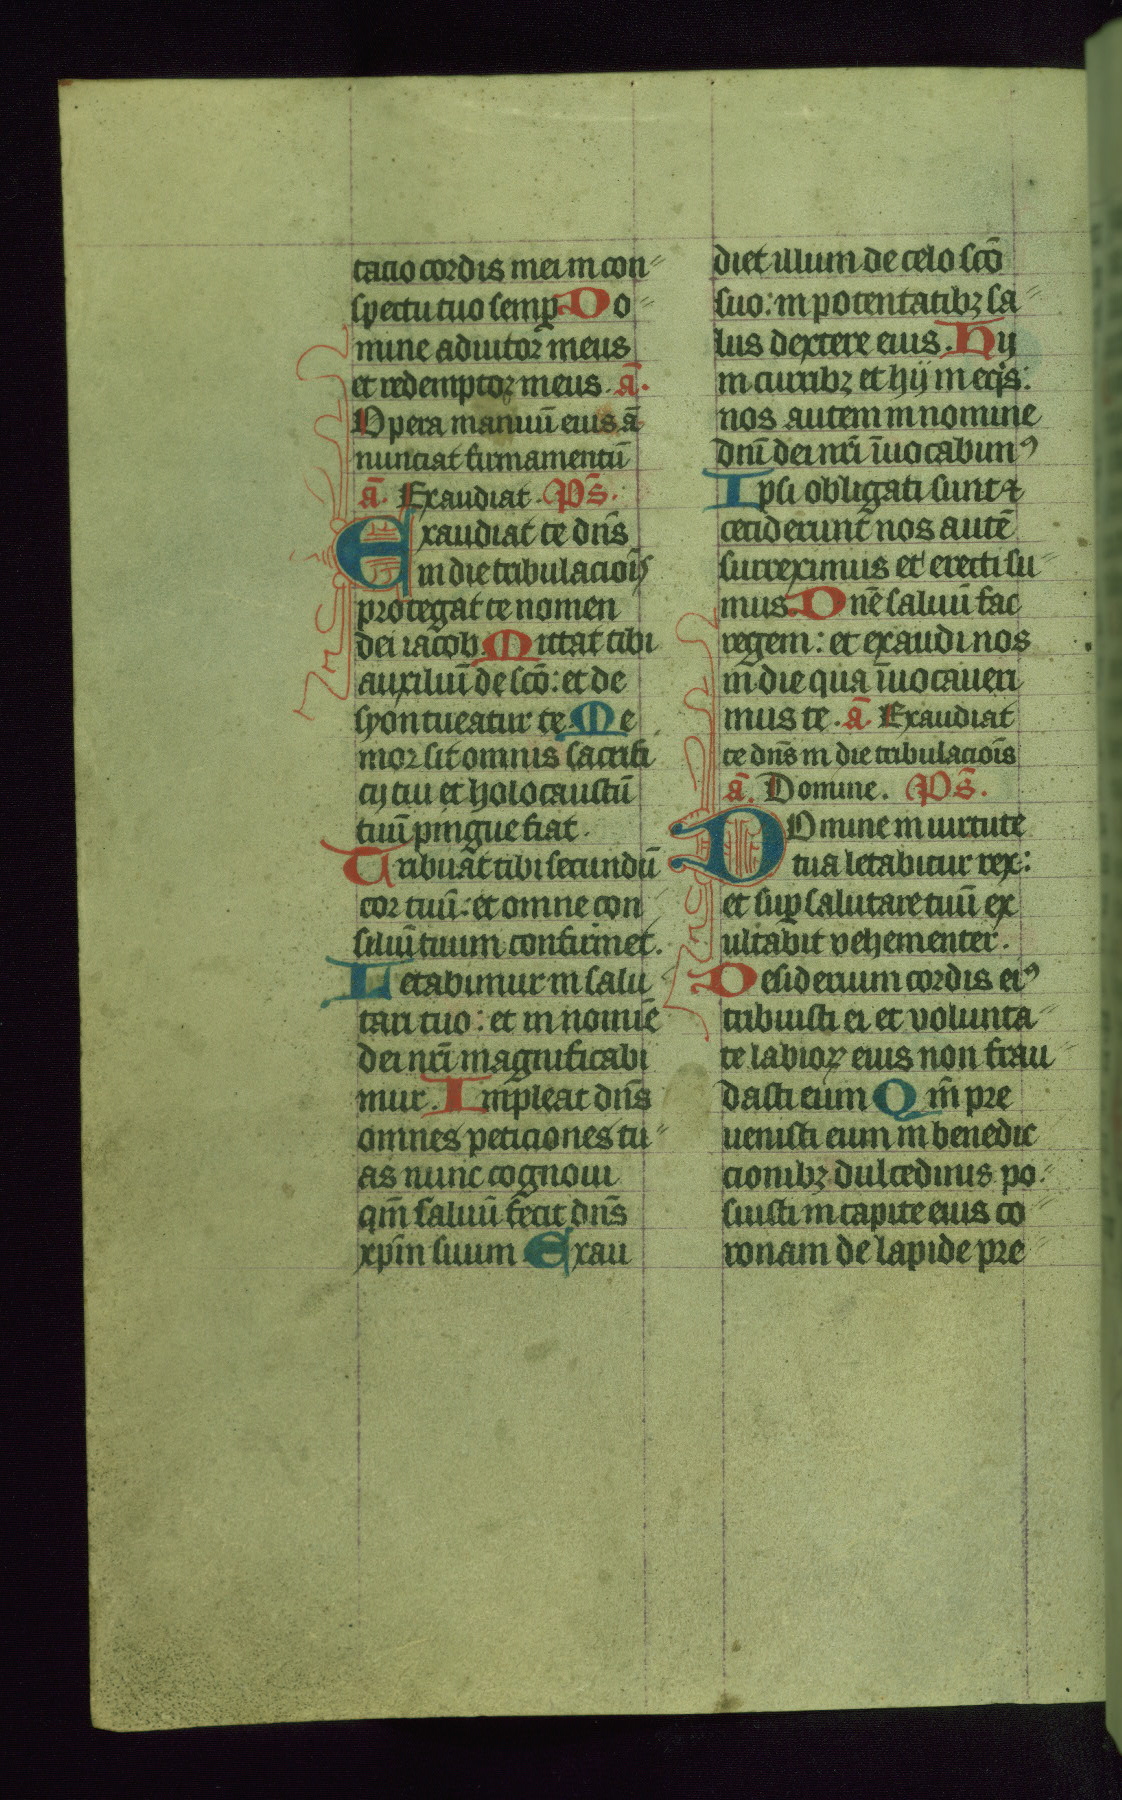 tacio cordis mei in con
spectu tuo semꝑ Do
mine adiutor meus
et redemptor meus. añ.
Opera manuū eius ā
nunciat firmamentū
añ. Exaudiat. Ps̄.
Exaudiat te dn̄s
in die tribulacioīs
protegat te nomen
dei iacob. Mittat tibi
auxiliū de sc̄o: et de
syon tueatur te. Me
mor sit omnis sacrifi
cij tui et holocaustū
tuū pingue fiat.
Tribuat tibi secundū
cor tuū: et omne con
siliū tuum confirmet.
Letabimur in salu
tari tuo: et in nomīe
dei nr̄i magnificabi
mur. Impleat dn̄s
omnes peticiones tu
as nunc cognoui
qm̄ saluū fecit dn̄s
xp̄m suum Exau
diet illum de celo sc̄o
suo: in potentatibꝫ sa
lus dextere eius. Hij
in curribꝫ et hij in eqͥs:
nos autem in nomine
dn̄i dei nr̄i īuocabimꝰ
Ipsi obligati sunt ⁊
ceciderunt nos autē
surreximus et erecti su
mus. Dn̄e saluū fac
regem: et exaudi nos
in die qua īuocaueri
mus te. añ. Exaudiat
te dn̄s in die tribulacoīs
añ. Domine. Ps̄.
DOmine in uirtute
tua letabitur rex:
et suꝑ salutare tuū ex
ultabit vehementer.
Desiderium cordis eiꝰ
tribuisti ei et volunta
te labioꝝ eius non frau
dasti eum Qm̄ pre
uenisti eum in benedic
cionibꝫ dulcedinis po
suisti in capite eius co
ronam de lapide pre